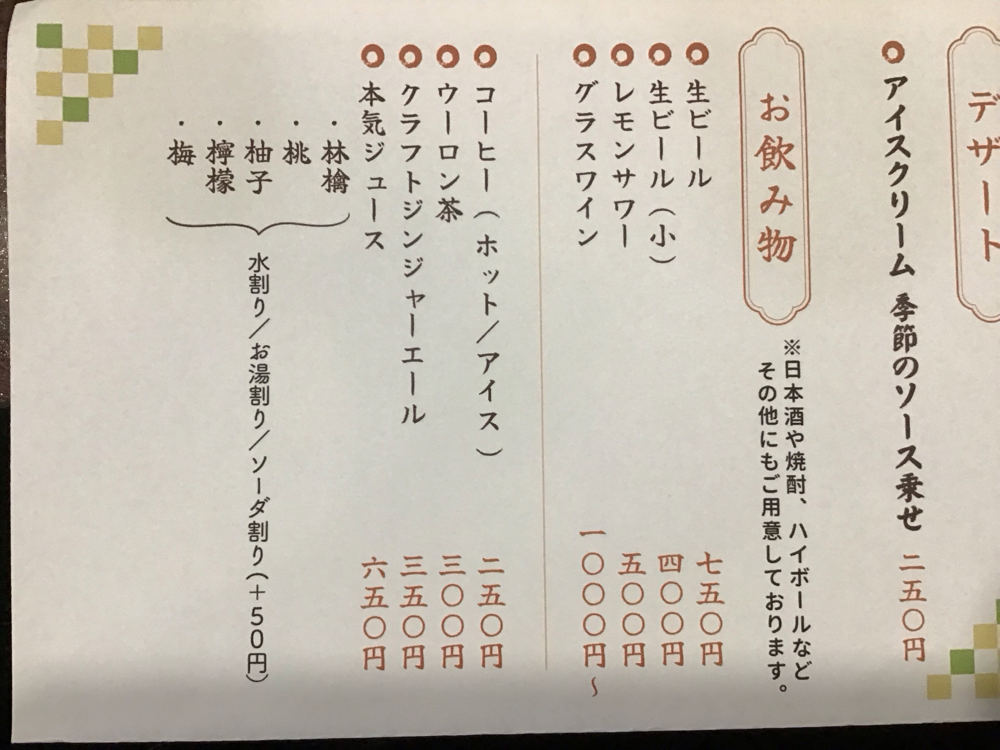 デザート
アイスクリーム 季節のソース乗せ 二五〇円
お飲み物
※日本酒や焼酎、ハイボールなど
その他にもご用意しております。
生ビール 七五〇円
生ビール(小) 四〇〇円
レモンサワー 五〇〇円
グラスワイン 一〇〇〇円~
コーヒー(ホット/アイス) 二五〇円
ウーロン茶 三〇〇円
クラフトジンジャーエール 三五〇円
本気ジュース 六五〇円
・林檎
・桃
・柚子
・檸檬
・梅
水割り/お湯割り/ソーダ割り(+50円)